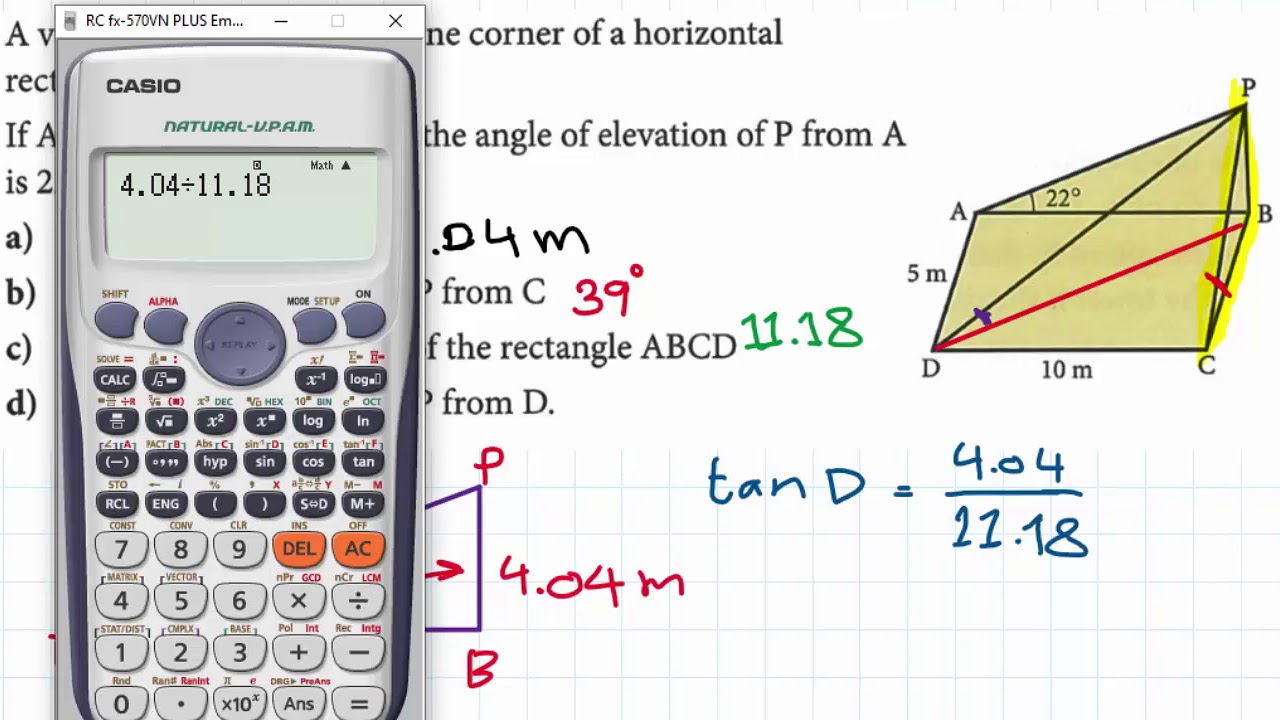 RC fx-570VN PLUS Em...
A v
ne corner of a horizontal
rect
If A
the angle of elevation of P from A
is 2
a)
.04 m
b)
P from C 39°
c)
f the rectangle ABCD 11.18
d)
P from D.
CASIO
NATURAL-V.P.A.M.
D Math ▲
4.04÷11.18
SHIFT ALPHA MODE SETUP ON
REPLAY
SOLVE = : x! Σ= Π=
CALC ∫ x⁻¹ log
÷R ³√ x³ DEC ˣ√ HEX 10ˣ BIN eˣ OCT
√ x² xˣ log ln
[∠] [A FACT [B Abs [C sin⁻¹ [D cos⁻¹ [E tan⁻¹ [F
(−) °,,, hyp sin cos tan
STO ← i % , X Y M− M
RCL ENG ( ) S⇔D M+
CONST CONV CLR INS OFF
7 8 9 DEL AC
[MATRIX] [VECTOR] nPr GCD nCr LCM
4 5 6 × ÷
[STAT/DIST] [CMPLX] [BASE] Pol Int Rec Intg
1 2 3 + −
Rnd Ran# RanInt π e DRG▸ PreAns
0 . ×10ˣ Ans =
P
A 22° B
5 m
D 10 m C
P
4.04 m
B
tan D = 4.04
11.18